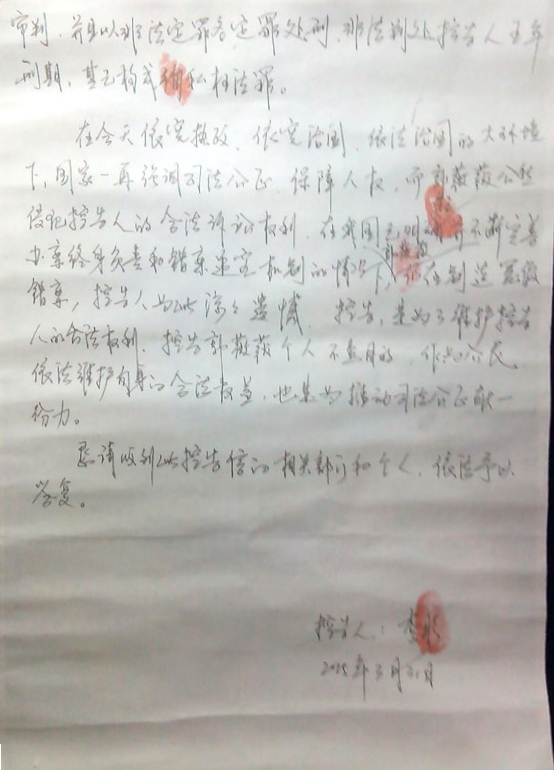 审判，并且以非法定罪名定罪处刑，非法判处控告人五年
刑期，其已构成徇私枉法罪。
在今天依宪执政，依宪治国，依法治国的大环境
下，国家一再强调司法公正，保障人权，而郭薇薇公然
侵犯控告人的合法诉讼权利，在我国已明确并不断完善
办案终身负责和错案追究机制的情况下，还在制造冤假
错案，控告人为此深感遗憾。控告，是为了维护控告
人的合法权利，控告郭薇薇个人不是目的，作为公民
依法维护自身的合法权益，也是为推动司法公正献一
份力。
恳请收到此控告信的相关部门和个人，依法予以
答复。
控告人：李
2015年5月21日